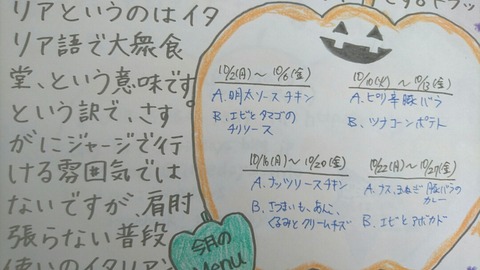 リアというのはイタ
リア語で大衆食
堂、という意味です。
という訳で、さす
がにジャージで行
ける雰囲気では
ないですが、肩肘
張らない普段
使いのイタリアン
10/2(月)～10/6(金)
A. 明太ソースチキン
B. エビとタマゴの
チリソース
10/10(火)～10/13(金)
A. ピリ辛豚バラ
B. ツナコーンポテト
10/16(月)～10/20(金)
A. ナッツソースチキン
B. さつまいも、あんこ、
くるみとクリームチーズ
10/22(月)～10/27(金)
A. ナス、玉ねぎ、豚バラの
カレー
B. エビとアボカド
今月の
Menu